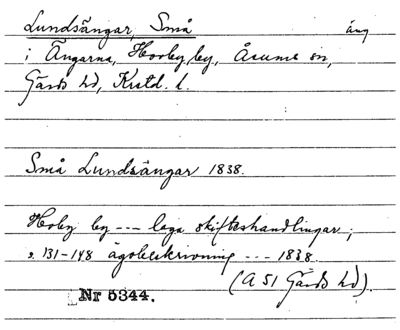 Lundsängar, Små äng
i Ängarna, Horby by, Åsums sn,
Gärds hd, Kristd. l.
Små Lundsängar 1838.
Hoby by --- laga skifteshandlingar;
s. 131-148 ägobeskrivning --- 1838.
(A 51 Gärds hd).
Nr 5344.